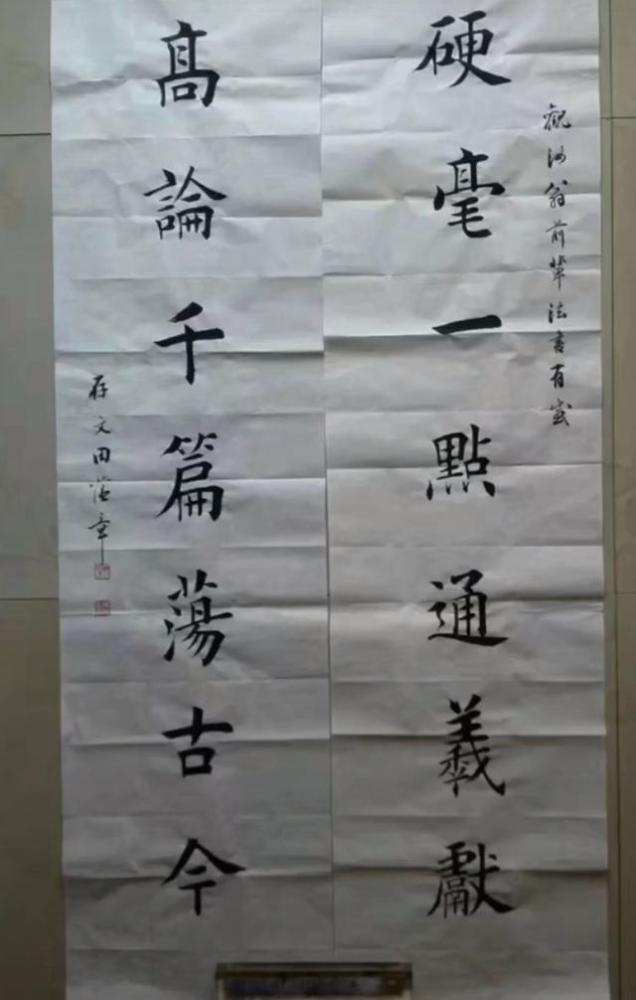 觀沙翁前輩法書有感
硬毫一點通義獻
高論千篇蕩古今
存文田蘊章